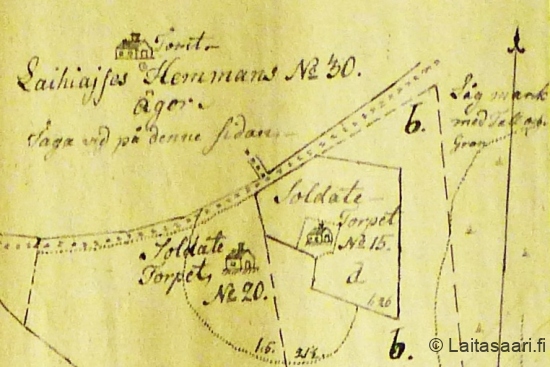 Torp
Laihiaisses Hemmans No 30.
ägor.
Läga vid på denne sidan
b.
med Tall och
Gran
Soldate
Torpet
No 15.
a
Soldate
Torpet
No 20.
b.
© Laitasaari.fi